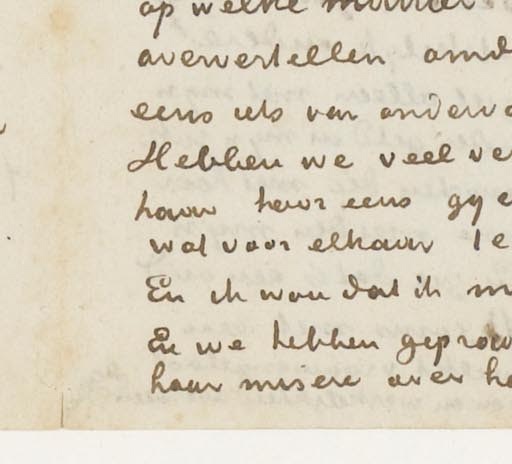 op welke manier
oververtellen omd
eens iets van anders
Hebben we veel ve
haar heur eens gy e
wat voor elkaar te
En ik wou dat ik m
En we hebben geprov
haar misere over ha